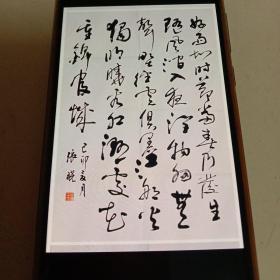 好雨知时节当春乃發生
随风潜入夜润物细无
声野径云俱黑江船火
独明晓看红湿处花
重锦官城
己卯夏月